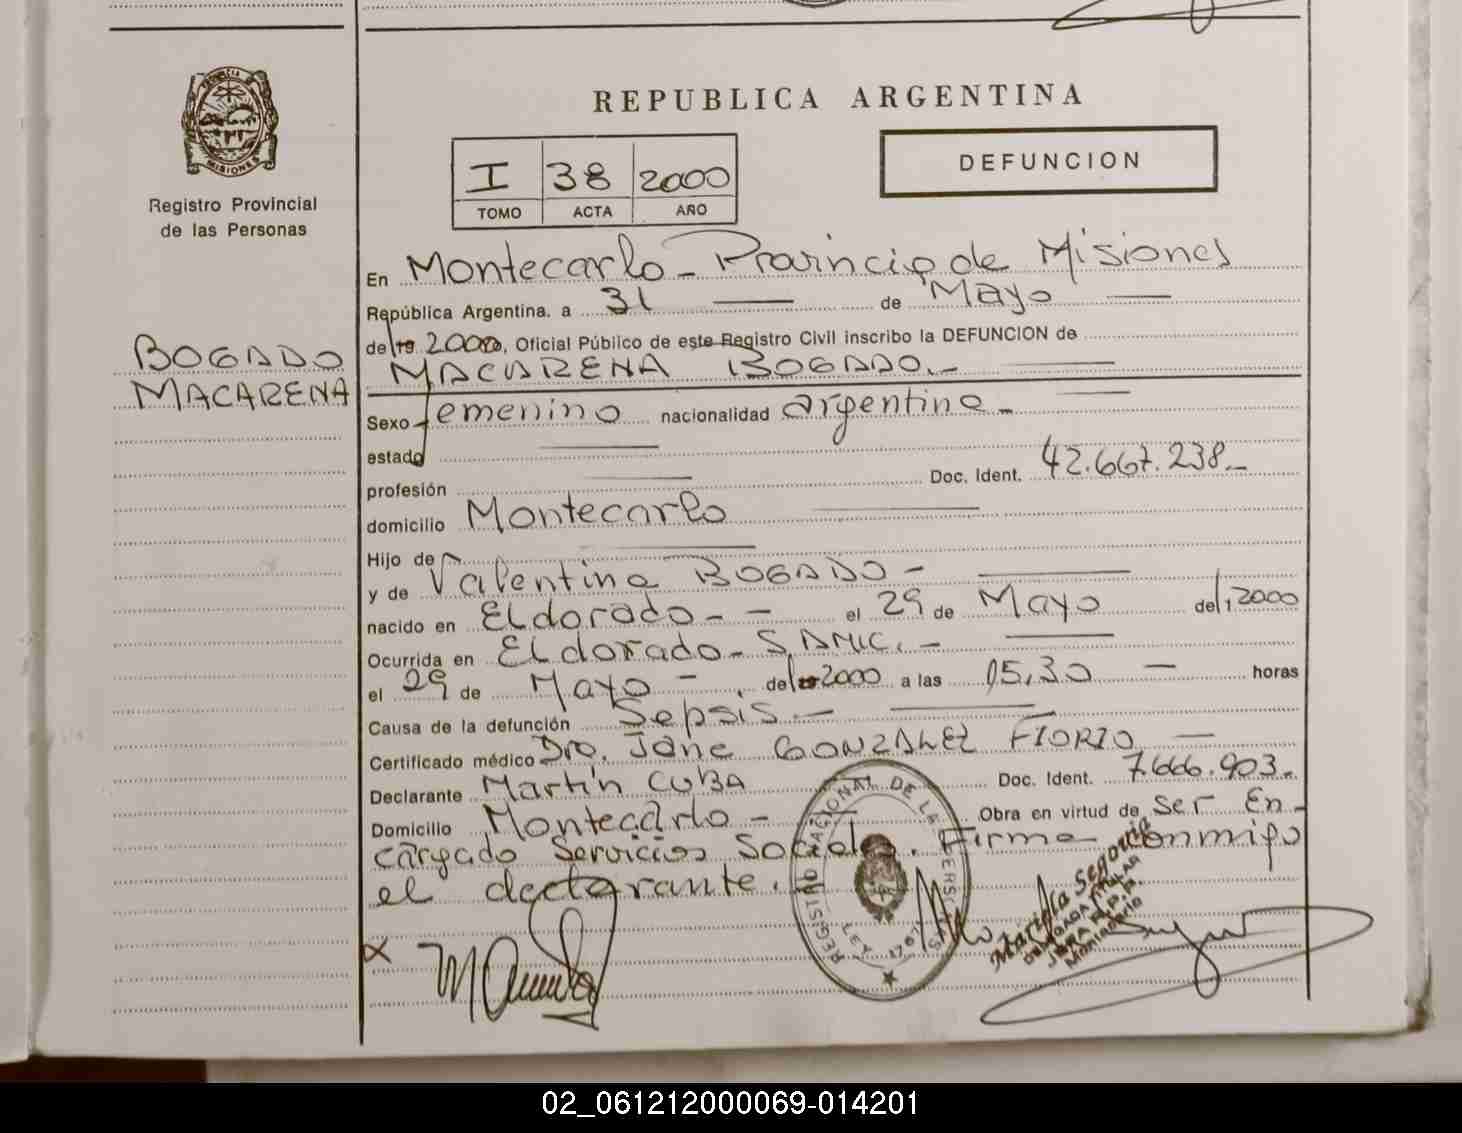 PROVINCIA DE
MISIONES
Registro Provincial
de las Personas
BOGADO
MACARENA
REPUBLICA ARGENTINA
I 38 2000
TOMO ACTA AÑO
DEFUNCION
En Montecarlo - Provincia de Misiones
República Argentina. a 31 de Mayo
de 19 2000, Oficial Público de este Registro Civil inscribo la DEFUNCION de
MACARENA BOGADO.-
Sexo femenino nacionalidad argentina -
estado
profesión Doc. Ident. 42.667.238-
domicilio Montecarlo
Hijo de
y de Valentina BOGADO -
nacido en Eldorado - - el 29 de Mayo del 2000
Ocurrida en Eldorado - S.AMIC. -
el 29 de Mayo - , de 19 2000 a las 15,30 - horas
Causa de la defunción Sepsis. -
Certificado médico Dra. Jane GONZALEZ FIORIO -
Declarante Martín CUBA Doc. Ident. 7.666.903.
Domicilio Montecarlo - Obra en virtud de ser En-
cargado Servicios Sociales. Firma conmigo
el declarante.
REGISTRO NACIONAL DE LAS PERSONAS
LEY 17671
Mariela Segovia
DELEGADA TITULAR
Montecarlo
02_061212000069-014201